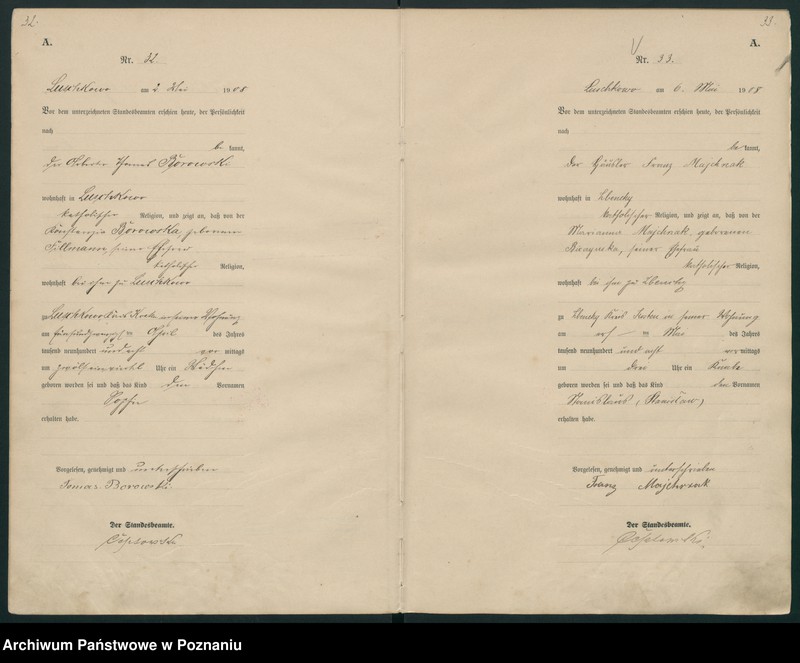 32.
A.
Nr. 32
Luschkowo am 2. Mai 1908
Vor dem unterzeichneten Standesbeamten erschien heute, der Persönlichkeit
nach
be kannt,
der Arbeiter Thomas Borowski
wohnhaft in Luschkowo
katholischer Religion, und zeigt an, daß von der
Konstanzia Borowska, geborenen
seiner Ehefrau
katholischer Religion,
wohnhaft bei ihm zu Luschkowo
zu Luschkowo Kreis Wohnung
am April des Jahres
tausend neunhundert und acht vor mittags
um Uhr ein Mädchen
geboren worden sei und daß das Kind den Vornamen
Sophie
erhalten habe.
Vorgelesen, genehmigt und unterschrieben
Tomas Borowski
Der Standesbeamte.
33.
A.
Nr. 33.
Luschkowo am 6. Mai 1908
Vor dem unterzeichneten Standesbeamten erschien heute, der Persönlichkeit
nach
be kannt,
der Häusler Franz Majchrzak
wohnhaft in Zbenchy
katholischer Religion, und zeigt an, daß von der
Marianna Majchrzak, geborenen
seiner Ehefrau
katholischer Religion,
wohnhaft bei ihm zu Zbenchy
zu Zbenchy Kreis in seiner Wohnung
am Mai des Jahres
tausend neunhundert und acht vormittags
um drei Uhr ein Knabe
geboren worden sei und daß das Kind den Vornamen
Stanislaus (Stanisław)
erhalten habe.
Vorgelesen, genehmigt und unterschrieben
Franz Majchrzak
Der Standesbeamte.
Archiwum Państwowe w Poznaniu